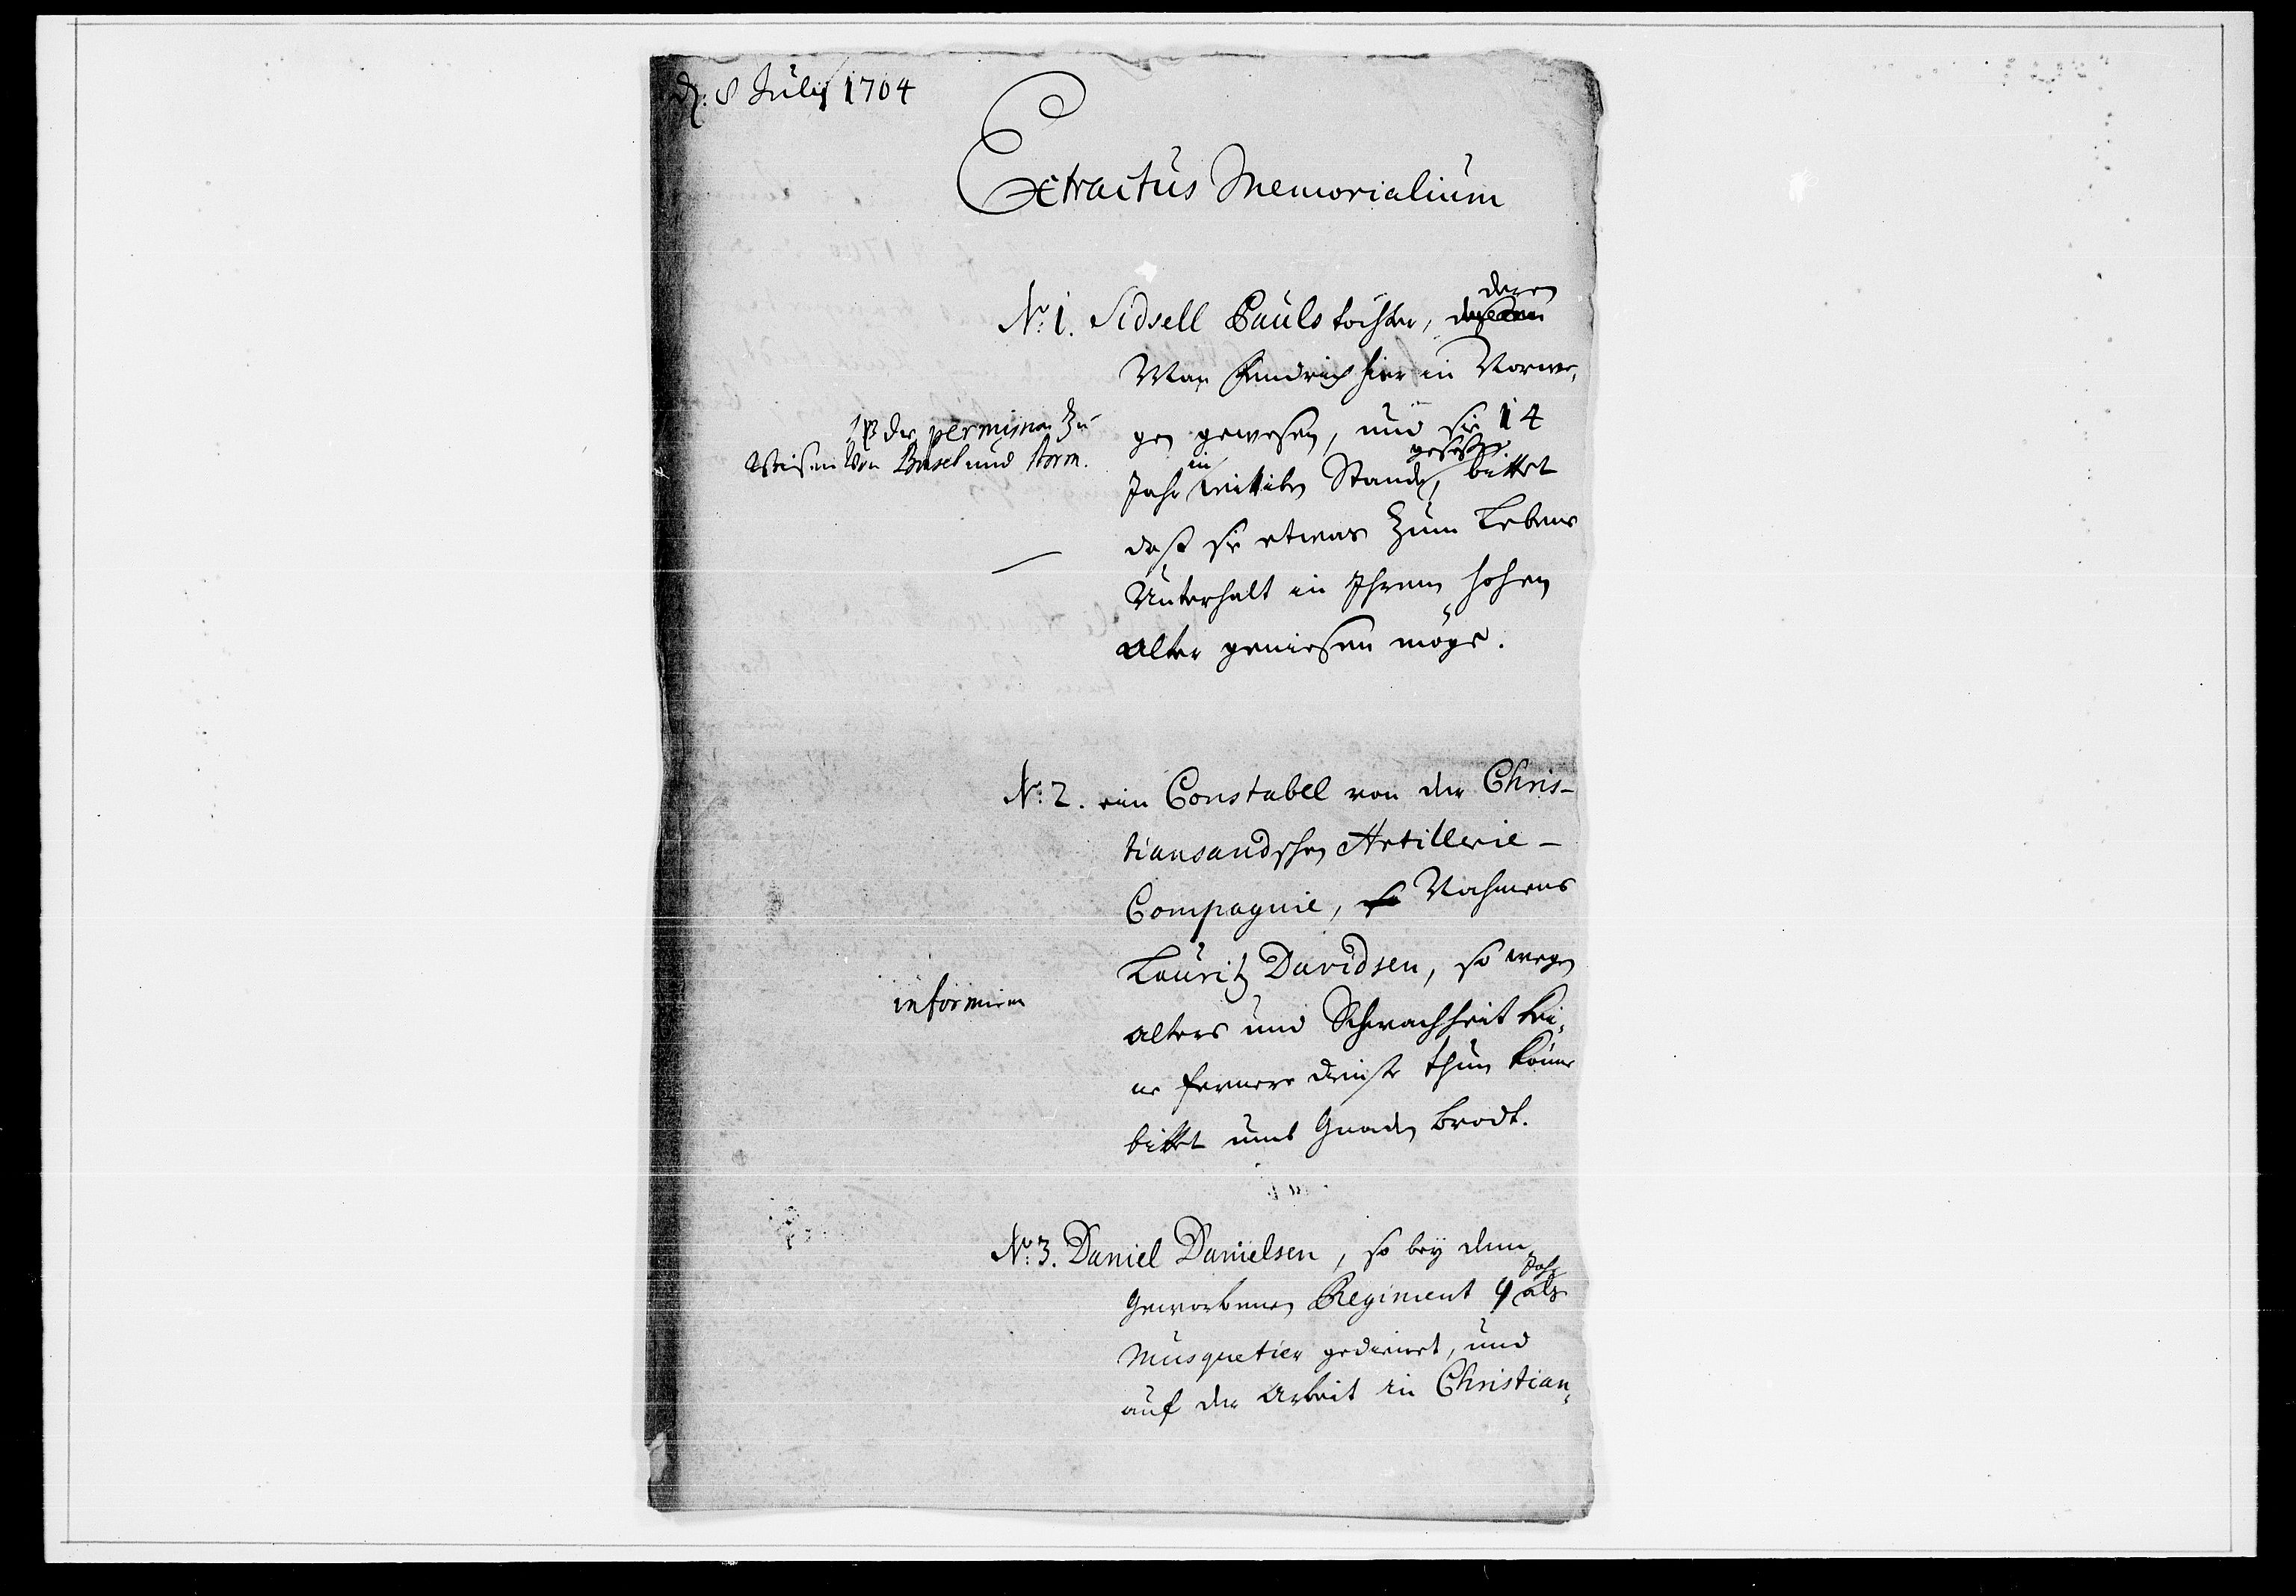 d: 8 July 1704
Extractus Memorialium
No: 1. Sidsell Pauls tochter, deren
Man Fendrich hier in Norwe,
gen gewesen, und sie 14
Jahr in witiben Stande gesessen, bittet
daß sie etwas Zum Lebens
Unterhalt in Ihrem hohen
alter geniesen möge.
der permission Zu
und Storm.
No: 2. ein Constabel von der Chris-
tiansandschen Artillerie-
Compagnie, Nahmens
Lauritz Davidsen, so wegen
alters und Schwachheit kei,
ne fernere dienste thun könne
bittet umb Gnaden Brodt.
informiren
No: 3. Daniel Danielsen, so bey dem
Geworbenen Regiment 9 Jahr als
Musquetier gedienet, und
auf der Arbeit in Christian,